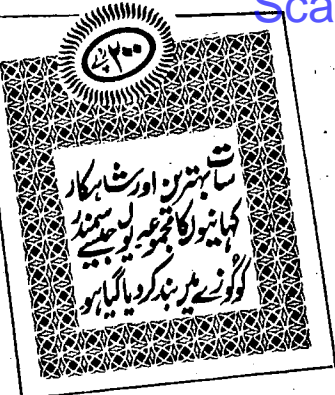 Sca
۲۰۰ پیسے
سات بہترین اور شاہکار
کہانیوں کا مجموعہ یوں جیسے سمندر
کو کوزے میں بند کر دیا گیا ہو